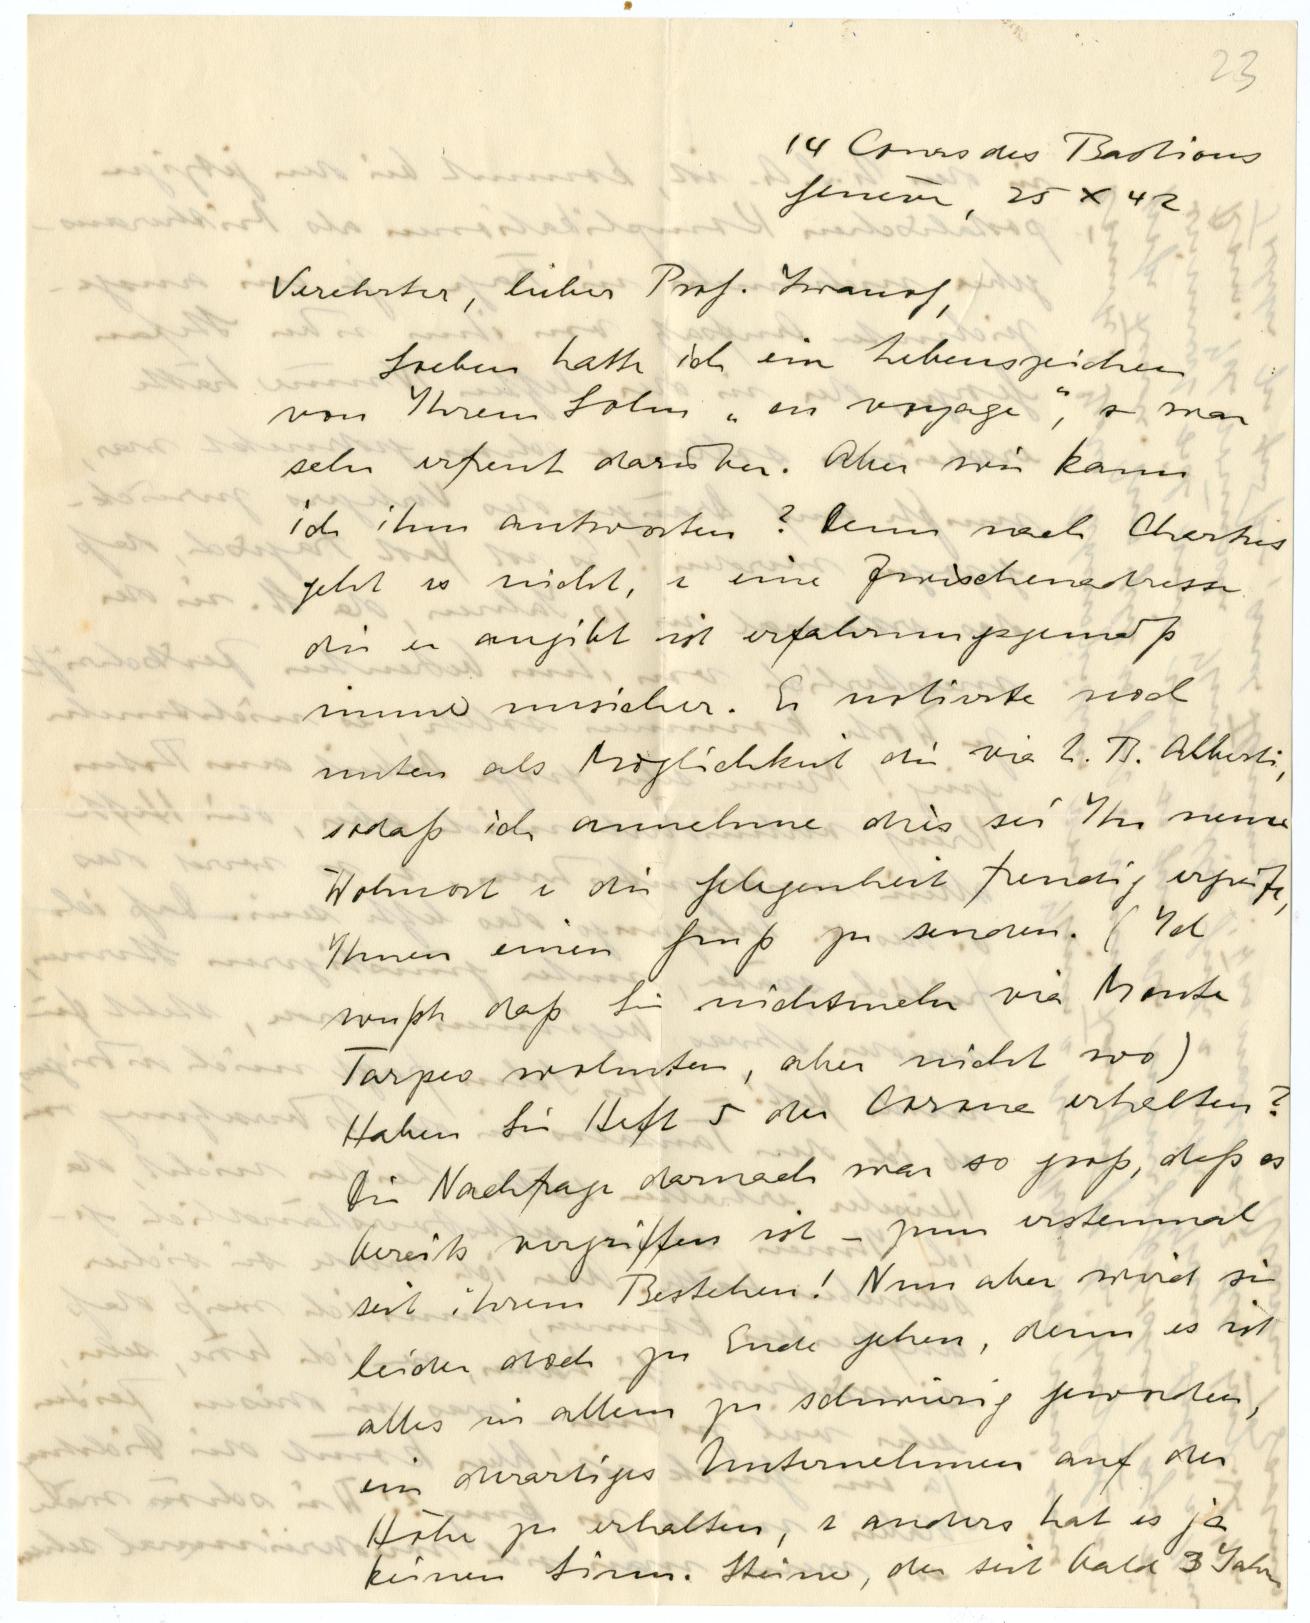 23
14 Cours des Bastions
Genève, 25 X 42
Verehrter, lieber Prof. Iwanof,
Soeben hatte ich ein Lebenszeichen
von Ihrem Sohn „en voyage“, u war
sehr erfreut darüber. Aber wie kann
ich ihm antworten? Denn nach Chartres
geht es nicht, u eine Zwischenadresse
die er angibt ist erfahrungsgemäß
immer unsicher. Er notierte noch
unten als Möglichkeit die via L. B. Alberti,
sodaß ich annehme dies sei Ihr neuer
Wohnort u die Gelegenheit freudig ergreife,
Ihnen einen Gruß zu senden. (Ich
wußte daß Sie nichtmehr via Monte
Tarpeo wohnten, aber nicht wo)
Haben Sie Heft 5 der Corona erhalten?
Die Nachfrage darnach war so groß, daß es
bereits vergriffen ist – zum erstenmal
seit ihrem Bestehen! Nun aber wird sie
leider doch zu Ende gehen, denn es ist
alles in allem zu schwierig geworden,
ein derartiges Unternehmen auf der
Höhe zu erhalten, u anders hat es ja
keinen Sinn. Steiner, der seit bald 3 Jahren